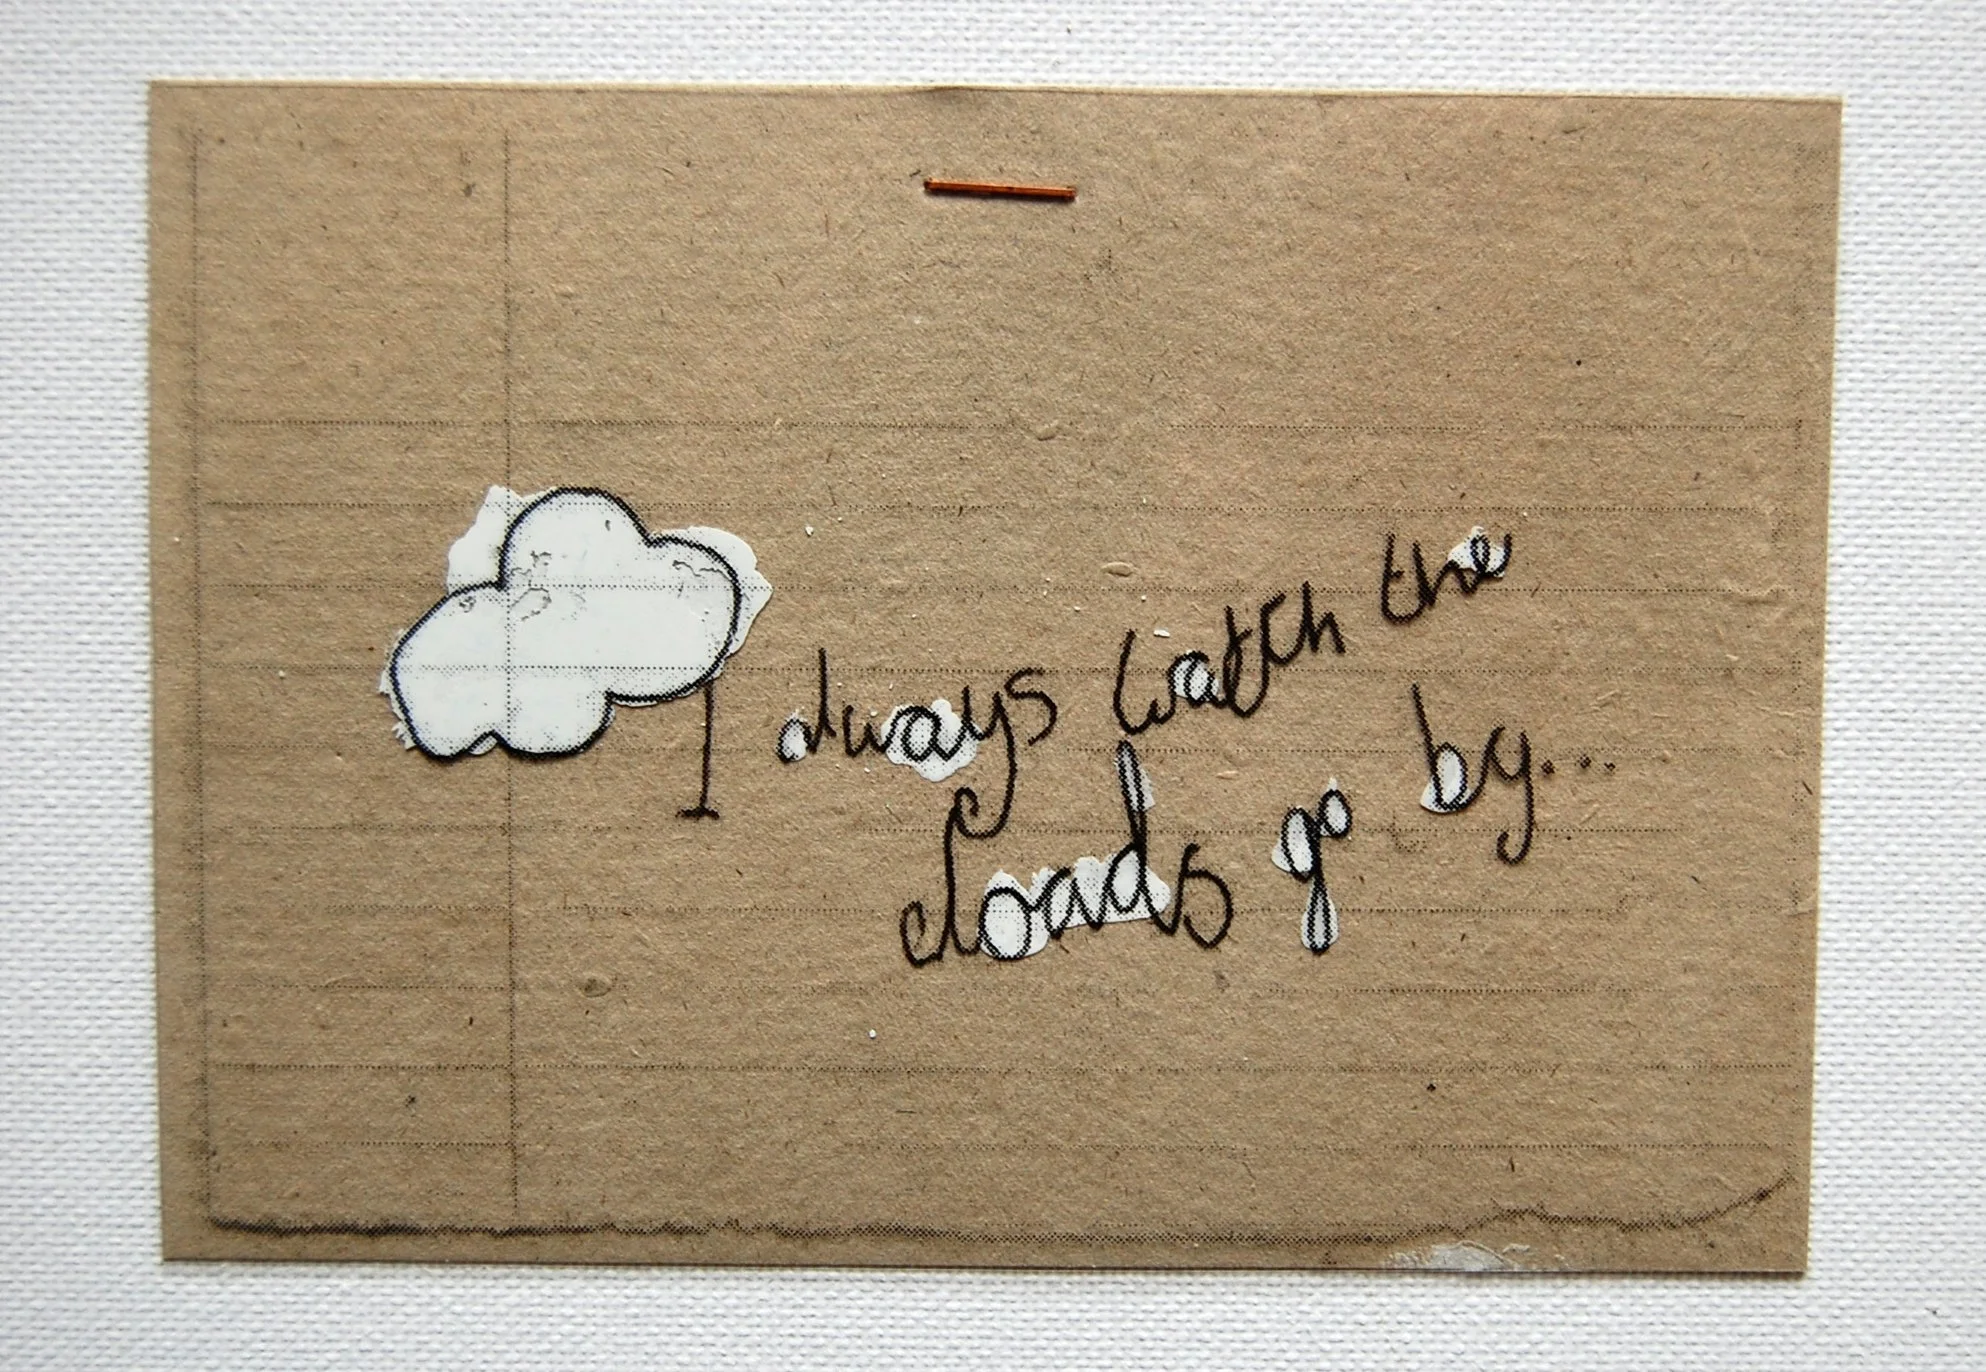 I always watch the
clouds go by...